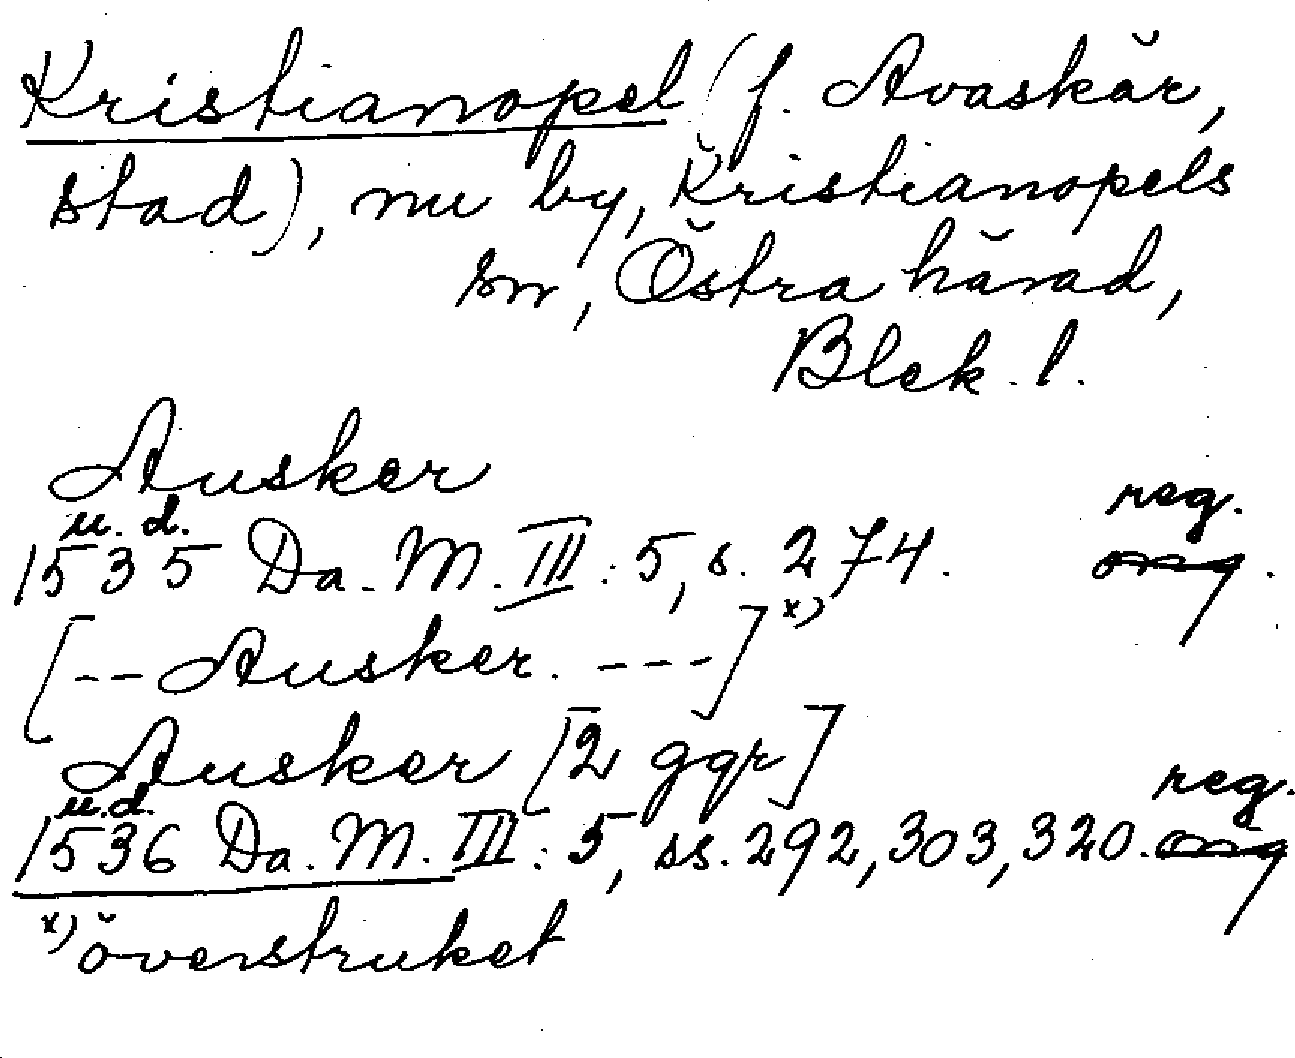 Kristianopel (f. Avaskär,
stad), nu by, Kristianopels
sn, Östra härad,
Blek. l.
Ausker
u. d. reg.
1535 Da. M. III: 5, s. 274. orig.
[-- Ausker. ---] x)
Ausker [2 ggr]
u.d. reg.
1536 Da. M. III: 5, ss. 292, 303, 320. orig
x) överstruket